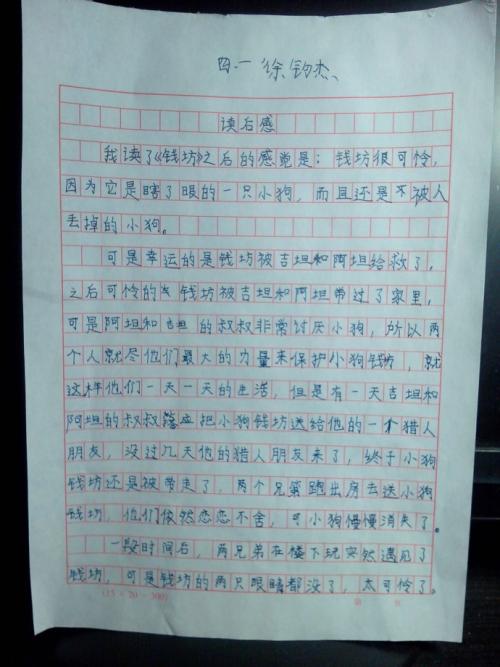 四.一 徐钧杰
读后感
我读了《钱坊》之后的感觉是：钱坊很可怜，
因为它是瞎了眼的一只小狗，而且还是不被人
丢掉的小狗。
可是幸运的是钱坊被吉坦和阿坦给救了，
之后可怜的钱坊被吉坦和阿坦带过了家里，
可是阿坦和吉坦的叔叔非常讨厌小狗，所以两
个人就尽他们最大的力量来保护小狗钱坊，就
这样他们一天一天的生活，但是有一天吉坦和
阿坦的叔叔答应把小狗钱坊送给他的一个猎人
朋友，没过几天他的猎人朋友来了，终于小狗
钱坊还是被带走了，两个兄弟跑出房去送小狗
钱坊，他们依然恋恋不舍，可小狗慢慢消失了。
一段时间后，两兄弟在楼下玩突然遇见了
钱坊，可是钱坊的两只眼睛都没了，太可怜了。
(15×20=300)